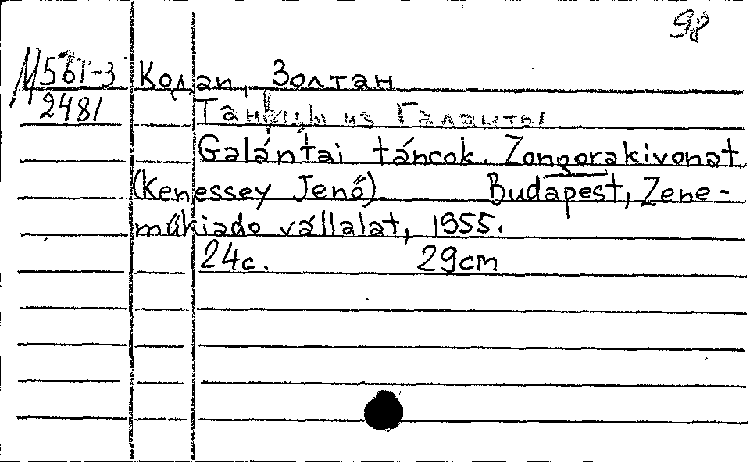 98
М561-3 Кодаи, Золтан
2481 Танцы из Галанты
Galántai táncok. Zongorakivonat
(Kenessey Jenő) Budapest, Zene-
műkiado vállalat, 1955.
24с. 29cm